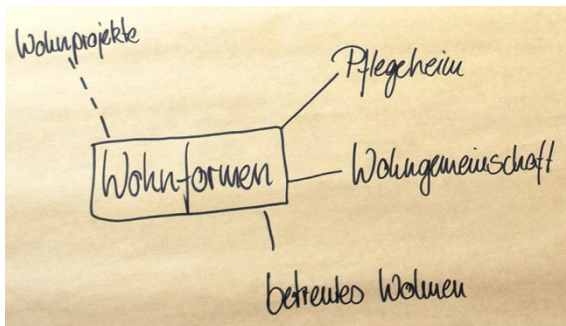 Wohnprojekte
Pflegeheim
Wohnformen
Wohngemeinschaft
betreutes Wohnen